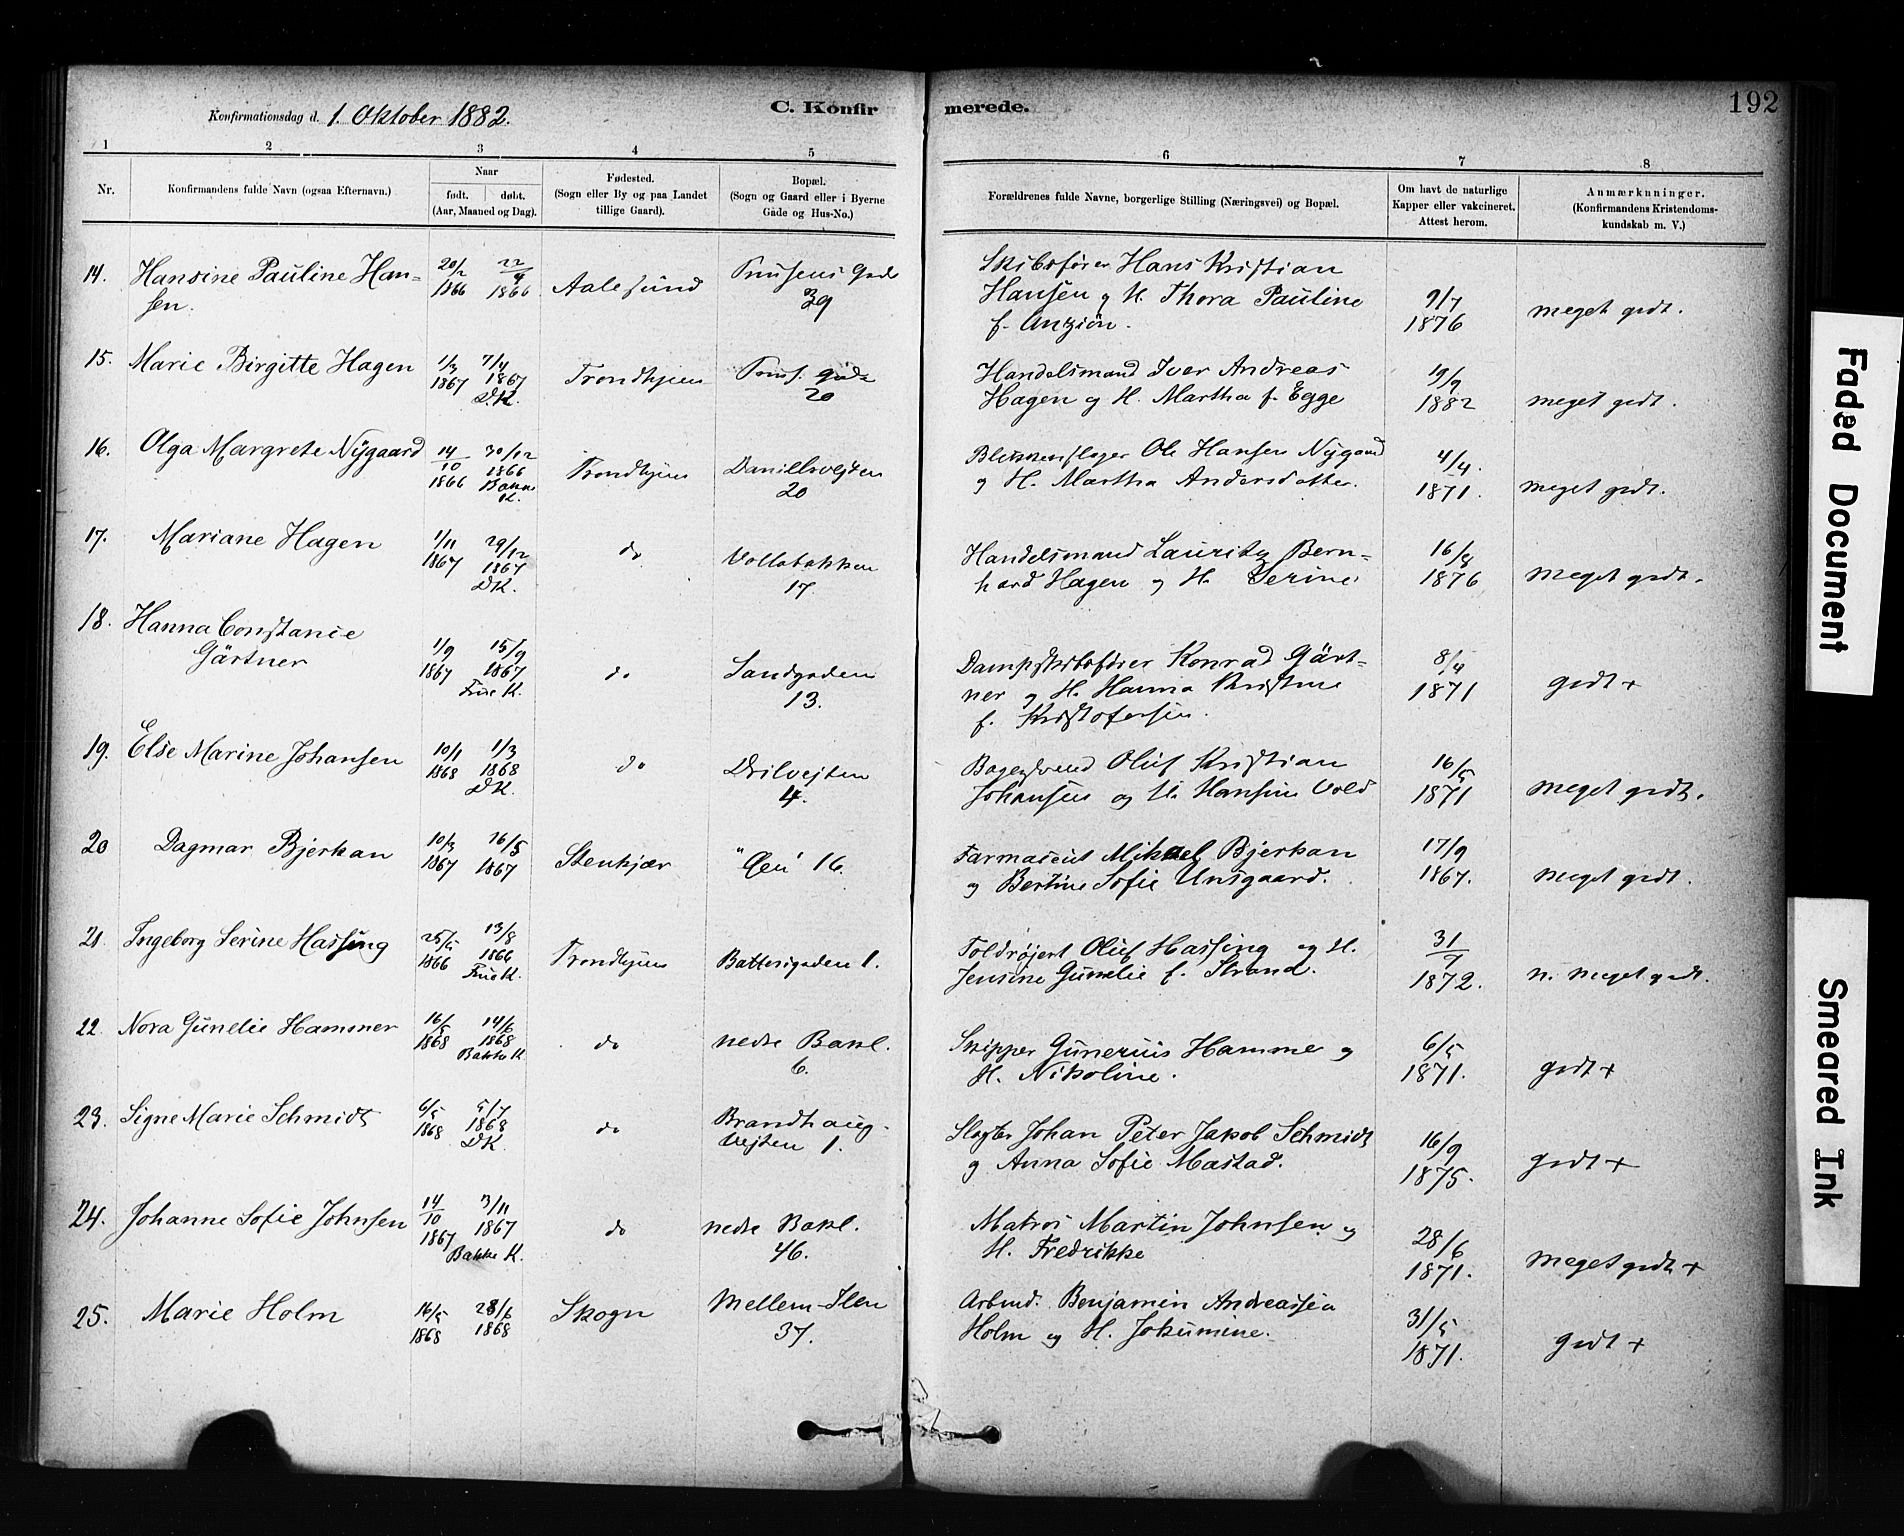 Konfirmationsdag d. 1. Oktober 1882.
C. Konfir
merede.
192
1 2 3 4 5 6 7 8
Nr.
Konfirmandens fulde Navn (ogsaa Efternavn.)
Naar
født. døbt.
(Aar, Maaned og Dag).
Fødested.
(Sogn eller By og paa Landet
tillige Gaard).
Bopæl.
(Sogn og Gaard eller i Byerne
Gade og Hus-No.)
Forældrenes fulde Navne, borgerlige Stilling (Næringsvei) og Bopæl.
Om havt de naturlige
Kapper eller vakcineret.
Attest herom.
Anmærkninger.
(Konfirmandens Kristendoms-
kundskab m. V.)
14. Hansine Pauline Han-
sen.
20/2 1866
22/9 1866
Aalesund
39
Skibsfører Hans Kristian
Hansen og H. Thora Pauline
f.
9/7
1876
meget godt.
15. Marie Birgitte Hagen
1/3 1867
7/4 1867
D.K.
Trondhjem
20
Handelsmand Iver Andreas
Hagen og H. Martha f. Egge
19/9
1882
meget godt.
16. Olga Margrete Nÿgaard
14/10 1866
30/12 1866
Bakke
K.
Trondhjem
20
Ole Hansen Nÿgaard
og H. Martha Andersdatter.
4/4.
1871.
meget godt.
17. Mariane Hagen
1/11 1867
29/12 1867
DK.
do
Vollabakken
17.
Handelsmand Lauritz Bern-
hard Hagen og H. Serine
16/8
1876
meget godt.
18. Hanna Constance
Gärtner
1/9 1867
15/9 1867
Frue K.
do
Sandgaden
13.
Dampskibsfører Konrad Gärt-
ner og H. Hanna Kristine
f. Kristofersen.
8/4
1871
godt +
19. Else Marine Johansen
10/1 1868
1/3 1868
DK.
do
4.
Oluf Kristian
Johansen og H. Hansine Vold
16/5
1871
meget godt.
20 Dagmar Bjerkan
10/3 1867
26/5 1867
Stenkjær
16.
Farmaceut Mikael Bjerkan
og Bertine Sofie
17/9
1867.
meget godt.
21. Ingeborg Serine Hassing
25/5 1866
13/8 1866
Frue K.
Trondhjem
Batterigaden 1.
Oluf Hassing og H.
Jensine Gunelie f. Strand.
31/7
1872.
n. meget godt.
22. Nora Gunelie Hammer
16/5 1868
14/6 1868
Bakke K
do
nedre Bakl.
6.
Skipper Gunerius Hammer og
H. Nikoline.
6/5
1871.
godt +
23. Signe Marie Schmidt
6/5 1868
5/7 1868
DK.
do
Brandhaug-
vejten 1.
Slagter Johan Peter Jakob Schmidt
og Anna Sofie Mastad.
16/9
1875.
godt +
24. Johanne Sofie Johnsen
14/10 1867
3/11 1867
Bakke K.
do
nedre Bakl.
46.
Matros Martin Johnsen og
H. Fredrikke
28/6
1871.
meget godt +
25. Marie Holm
16/5 1868
28/6 1868
Skogn
Mellem-Ilen
37.
Arbmd. Benjamin Andreassen
Holm og H. Jokumine.
31/5
1871.
godt +
Faded Document
Smeared Ink